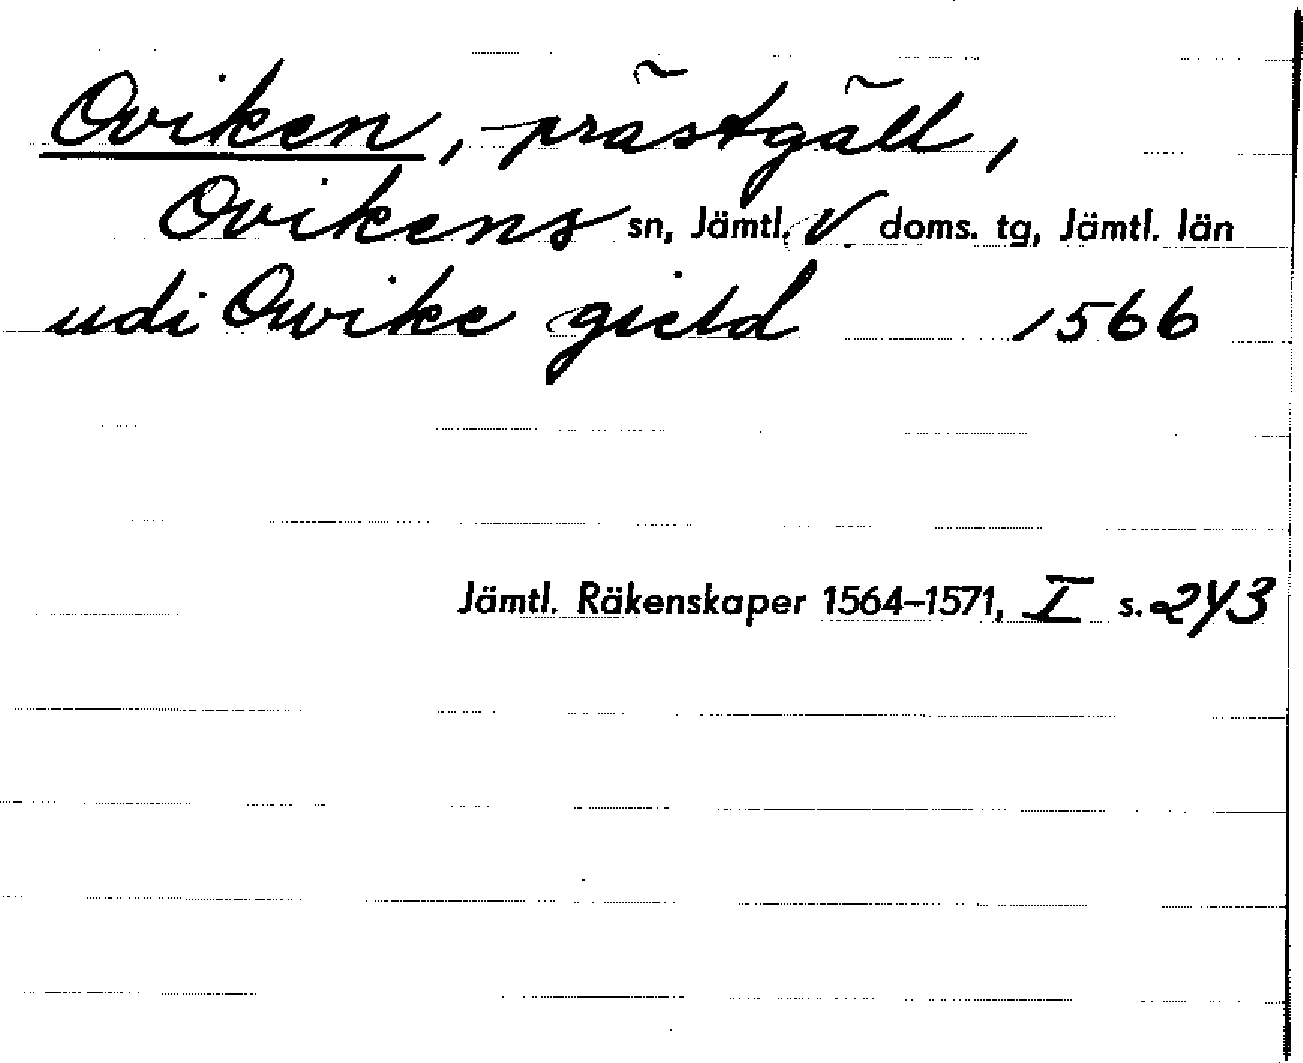 Oviken, prästgäll,
Ovikens sn, Jämtl. V doms. tg, Jämtl. län
udi Owike gield 1566
Jämtl. Räkenskaper 1564–1571, I s. 243